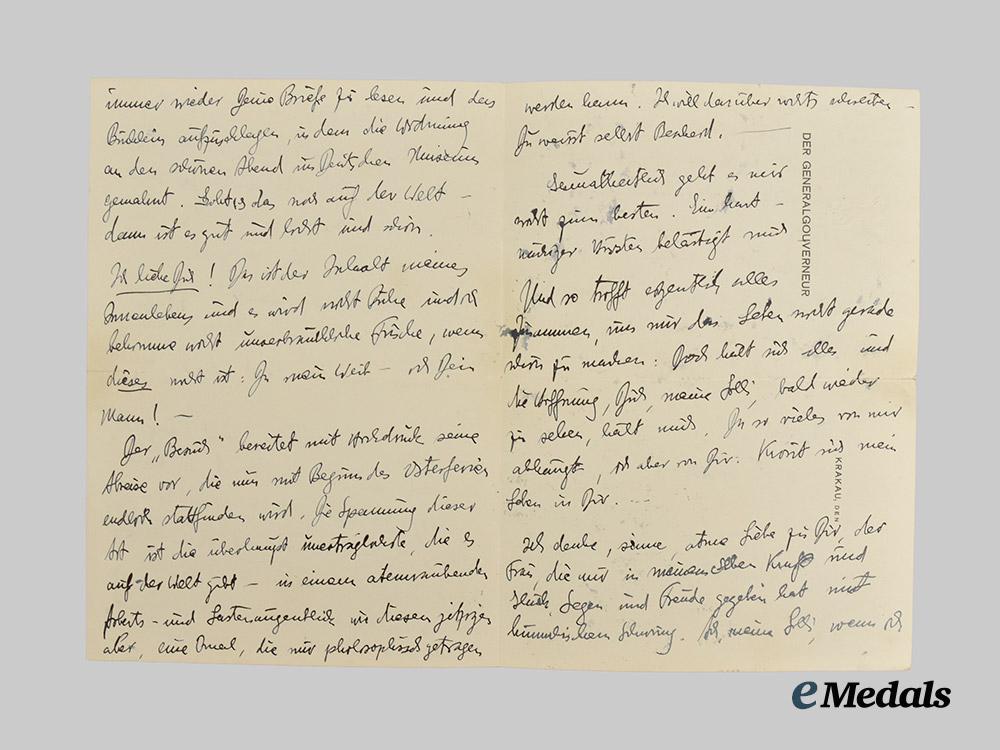 immer wieder Deine Briefe zu lesen und das
Büchlein aufzuschlagen, in dem die Widmung
an den schönen Abend im Deutschen Museum
gemahnt. das noch auf der Welt –
dann ist es gut und licht und schön.
Ich liebe Dich! Das ist der Inhalt meines
Innenlebens und es wird nicht und ich
bekomme nicht unverbrauchliche Frische, wenn
dieses nicht ist: Du mein Weib – ich Dein
Mann! –
Der „Besuch“ bereitet mit Hochdruck seine
Abreise vor, die nun mit Beginn der Osterferien
endlich stattfinden wird. Die Spannung dieser
Art ist die überhaupt unerträglichste, die es
auf der Welt gibt – in einem atemraubenden
Arbeits- und Lastenaugenblick wie diesem jetzigen
aber, eine Qual, die nur philosophisch getragen
werden kann. Ich will darüber nichts schreiben –
Du weisst selbst Bescheid.
Gesundheitlich geht es mir
nicht zum besten. Ein hart-
näckiger Husten belästigt mich
Und so trifft eigentlich alles
zusammen, um mir das Leben nicht gerade
schön zu machen: Doch hält sich alles und
die Hoffnung, Dich, meine Lilli, bald wieder
zu sehen, hält mich. Da so vieles von mir
abhängt, ich aber von Dir. Krönt sich mein
Leben in Dir. –
Ich denke, sinne, atme Liebe zu Dir, der
Frau, die mir in Kraft und
Glück, Segen und Freude gegeben hat mit
himmlischem Schwung. Ach, meine Lilli, wenn ich
DER GENERALGOUVERNEUR
KRAKAU, DEN
eMedals